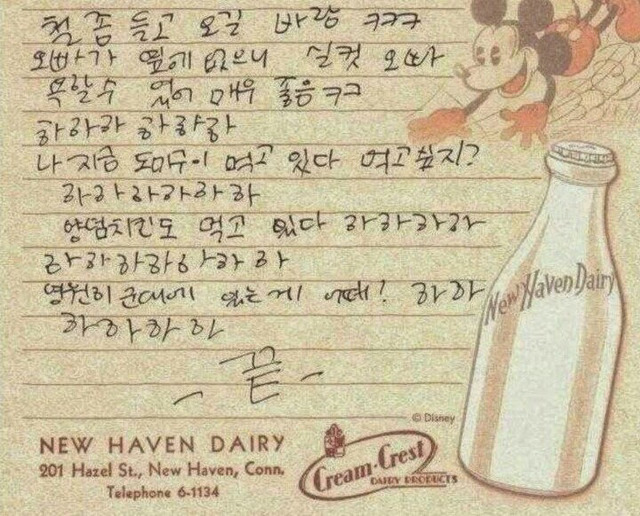 철 좀 들고 오길 바람 ㅋㅋㅋ
오빠가 옆에 없으니 실컷 오빠
욕할 수 있어 매우 좋음 ㅋㅋ
하하하 하하하
나 지금 도미구이 먹고 있다 먹고싶지?
하하하하하하
양념치킨도 먹고 있다 하하하하
하하하하하하하
영원히 군대에 있는게 어때! 하하
하하하하
- 끝 -
© Disney
NEW HAVEN DAIRY
201 Hazel St., New Haven, Conn.
Telephone 6-1134
Cream-Crest
DAIRY PRODUCTS
New Haven Dairy